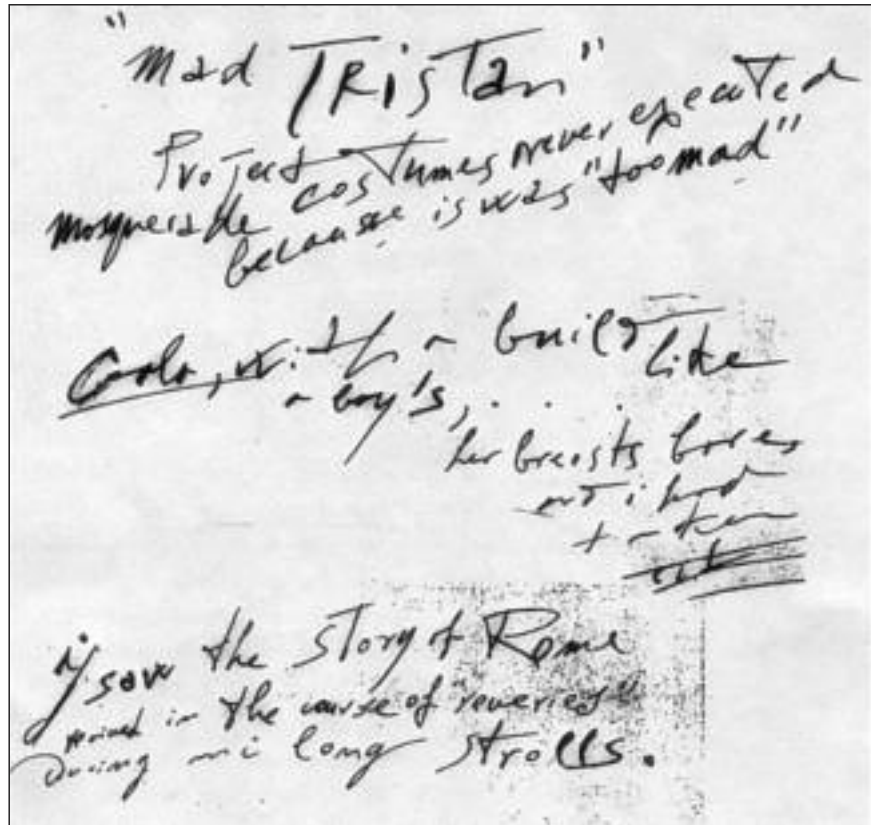 "Mad Tristan"
Project costumes never executed
because is was "too mad"
with a built like
a boy's,
her breists bare,
i saw the story of Rome
in the course of "reveries"
During mi long strolls.